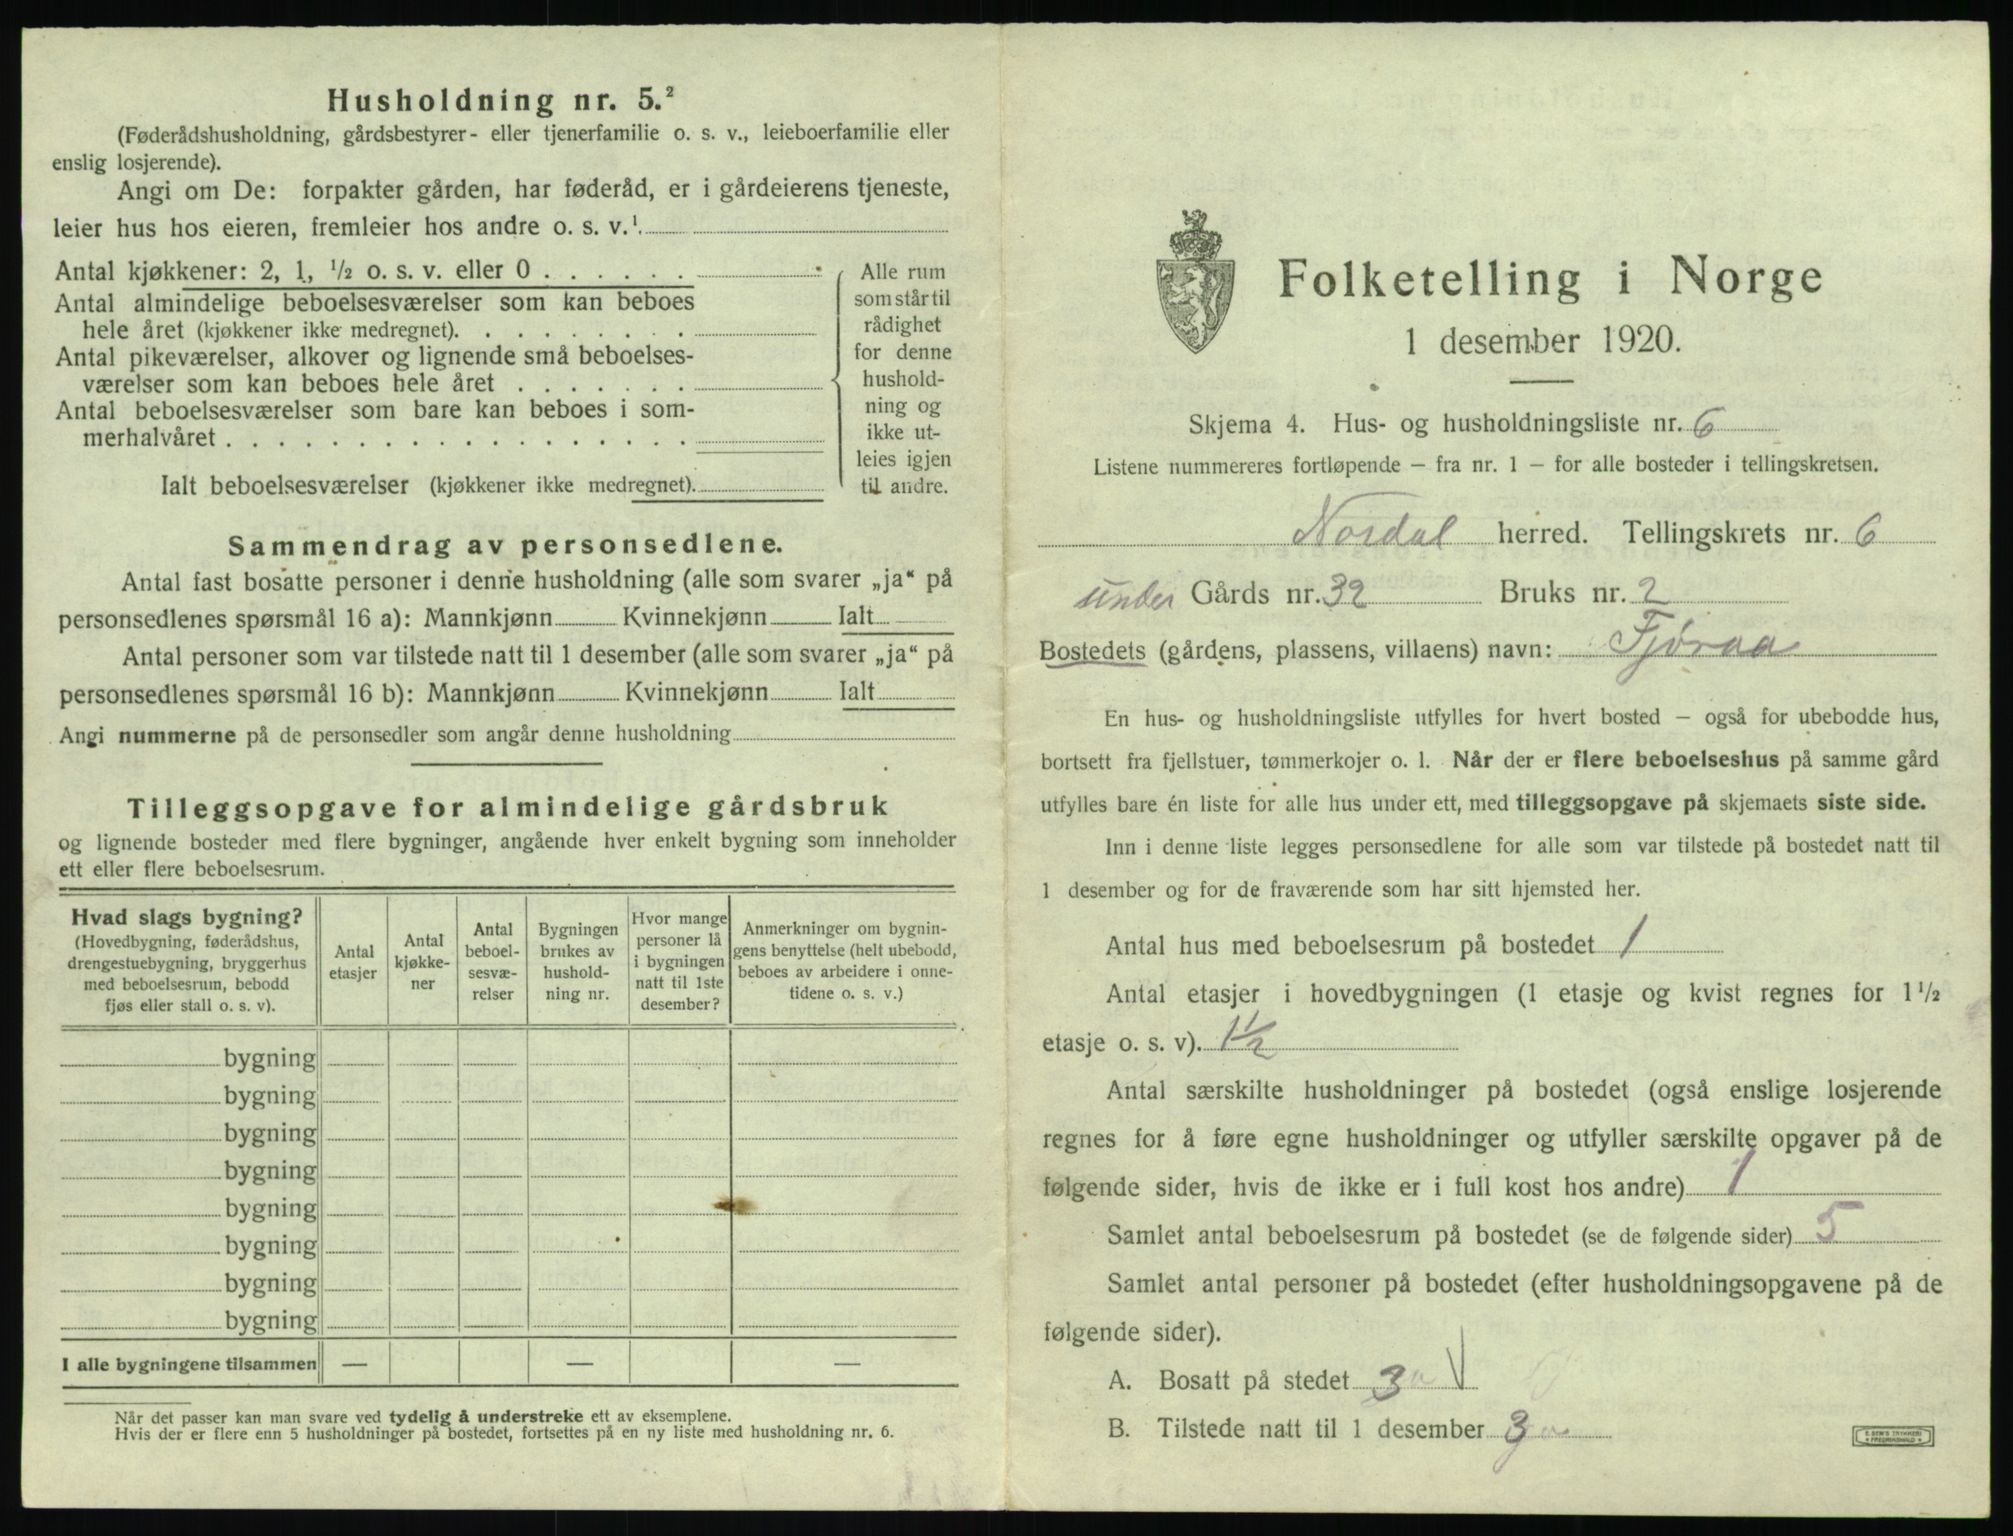 Husholdning nr. 5.²
(Føderådshusholdning, gårdsbestyrer- eller tjenerfamilie o. s. v., leieboerfamilie eller
enslig losjerende).
Angi om De: forpakter gården, har føderåd, er i gårdeierens tjeneste,
leier hus hos eieren, fremleier hos andre o. s. v.¹
Antal kjøkkener: 2, 1, ½ o. s. v. eller 0 . . . . . .
Antal almindelige beboelsesværelser som kan beboes
hele året (kjøkkener ikke medregnet). . . . . . . . .
Antal pikeværelser, alkover og lignende små beboelses-
værelser som kan beboes hele året . . . . . . .
Antal beboelsesværelser som bare kan beboes i som-
merhalvåret . . . . . . . . . . . . . . . . . .
Ialt beboelsesværelser (kjøkkener ikke medregnet).
Alle rum
som står til
rådighet
for denne
hushold-
ning og
ikke ut-
leies igjen
til andre.
Sammendrag av personsedlene.
Antal fast bosatte personer i denne husholdning (alle som svarer „ja“ på
personsedlenes spørsmål 16 a): Mannkjønn Kvinnekjønn Ialt
Antal personer som var tilstede natt til 1 desember (alle som svarer „ja“ på
personsedlenes spørsmål 16 b): Mannkjønn Kvinnekjønn Ialt
Angi nummerne på de personsedler som angår denne husholdning
Tilleggsopgave for almindelige gårdsbruk
og lignende bosteder med flere bygninger, angående hver enkelt bygning som inneholder
ett eller flere beboelsesrum.
Hvad slags bygning?
(Hovedbygning, føderådshus,
drengestuebygning, bryggerhus
med beboelsesrum, bebodd
fjøs eller stall o. s. v).
Antal
etasjer
Antal
kjøkke-
ner
Antal
beboel-
sesvæ-
relser
Bygningen
brukes av
hushold-
ning nr.
Hvor mange
personer lå
i bygningen
natt til 1ste
desember?
Anmerkninger om bygnin-
gens benyttelse (helt ubebodd,
beboes av arbeidere i onne-
tidene o. s. v.)
bygning
bygning
bygning
bygning
bygning
bygning
bygning
bygning
I alle bygningene tilsammen — — —
Når det passer kan man svare ved tydelig å understreke ett av eksemplene.
Hvis der er flere enn 5 husholdninger på bostedet, fortsettes på en ny liste med husholdning nr. 6.
Folketelling i Norge
1 desember 1920.
Skjema 4. Hus- og husholdningsliste nr. 6
Listene nummereres fortløpende – fra nr. 1 – for alle bosteder i tellingskretsen.
Nordal herred. Tellingskrets nr. 6
under Gårds nr. 32 Bruks nr. 2
Bostedets (gårdens, plassens, villaens) navn: Fjøraa
En hus- og husholdningsliste utfylles for hvert bosted – også for ubebodde hus,
bortsett fra fjellstuer, tømmerkojer o. l. Når der er flere beboelseshus på samme gård
utfylles bare én liste for alle hus under ett, med tilleggsopgave på skjemaets siste side.
Inn i denne liste legges personsedlene for alle som var tilstede på bostedet natt til
1 desember og for de fraværende som har sitt hjemsted her.
Antal hus med beboelsesrum på bostedet 1
Antal etasjer i hovedbygningen (1 etasje og kvist regnes for 1½
etasje o. s. v). 1½
Antal særskilte husholdninger på bostedet (også enslige losjerende
regnes for å føre egne husholdninger og utfyller særskilte opgaver på de
følgende sider, hvis de ikke er i full kost hos andre) 1
Samlet antal beboelsesrum på bostedet (se de følgende sider) 5
Samlet antal personer på bostedet (efter husholdningsopgavene på de
følgende sider).
A. Bosatt på stedet 3
B. Tilstede natt til 1 desember 3